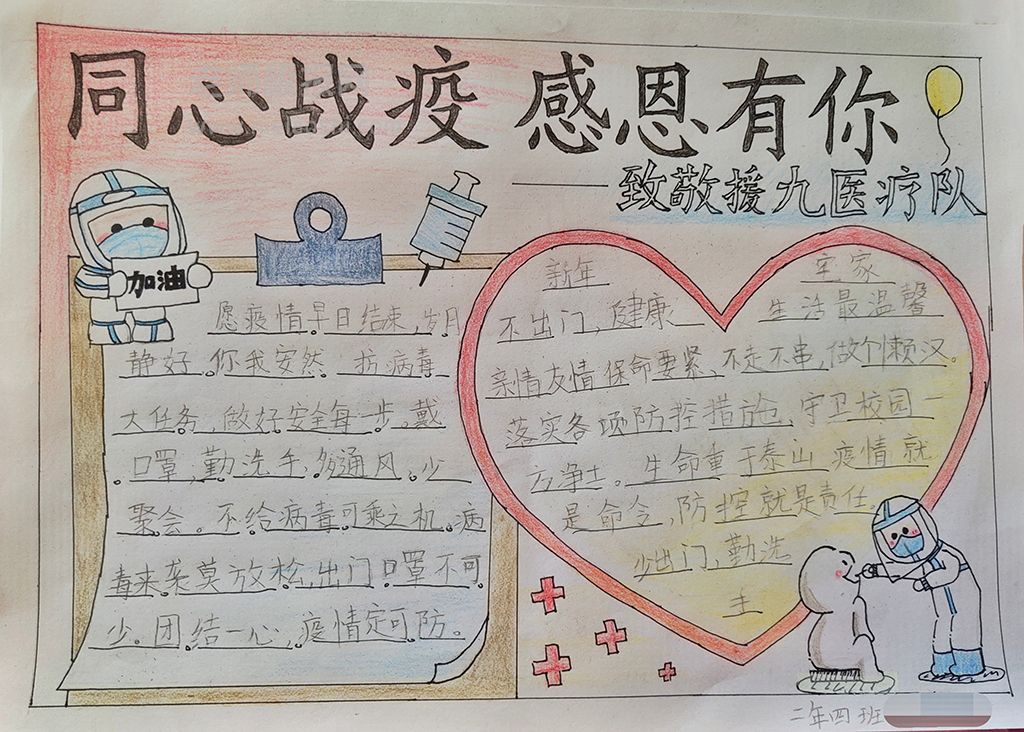 同心战疫 感恩有你
——致敬援九医疗队
加油
愿疫情早日结束,岁月
静好,你我安然。抗病毒
大任务,做好安全每一步。戴
口罩,勤洗手,多通风。少
聚会。不给病毒可乘之机。病
毒来袭莫放松,出门口罩不可
少。团结一心,疫情定可防。
新年 宅家
不出门,健康 生活最温馨
亲情友情保命要紧、不走不串,做个懒汉。
落实各项防控措施,守卫校园一
方净土。生命重于泰山 疫情就
是命令,防控就是责任,
少出门,勤洗
手
二年四班